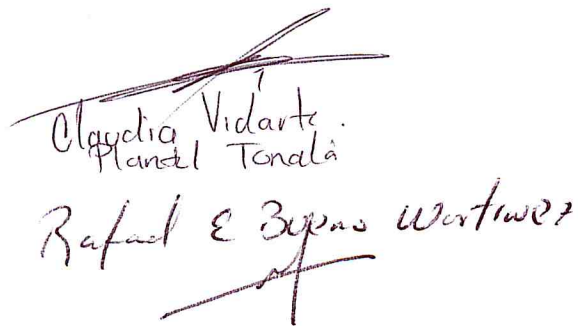 Claudia Vidarte.
Plantel Tonalá
Rafael E Bueno Martinez